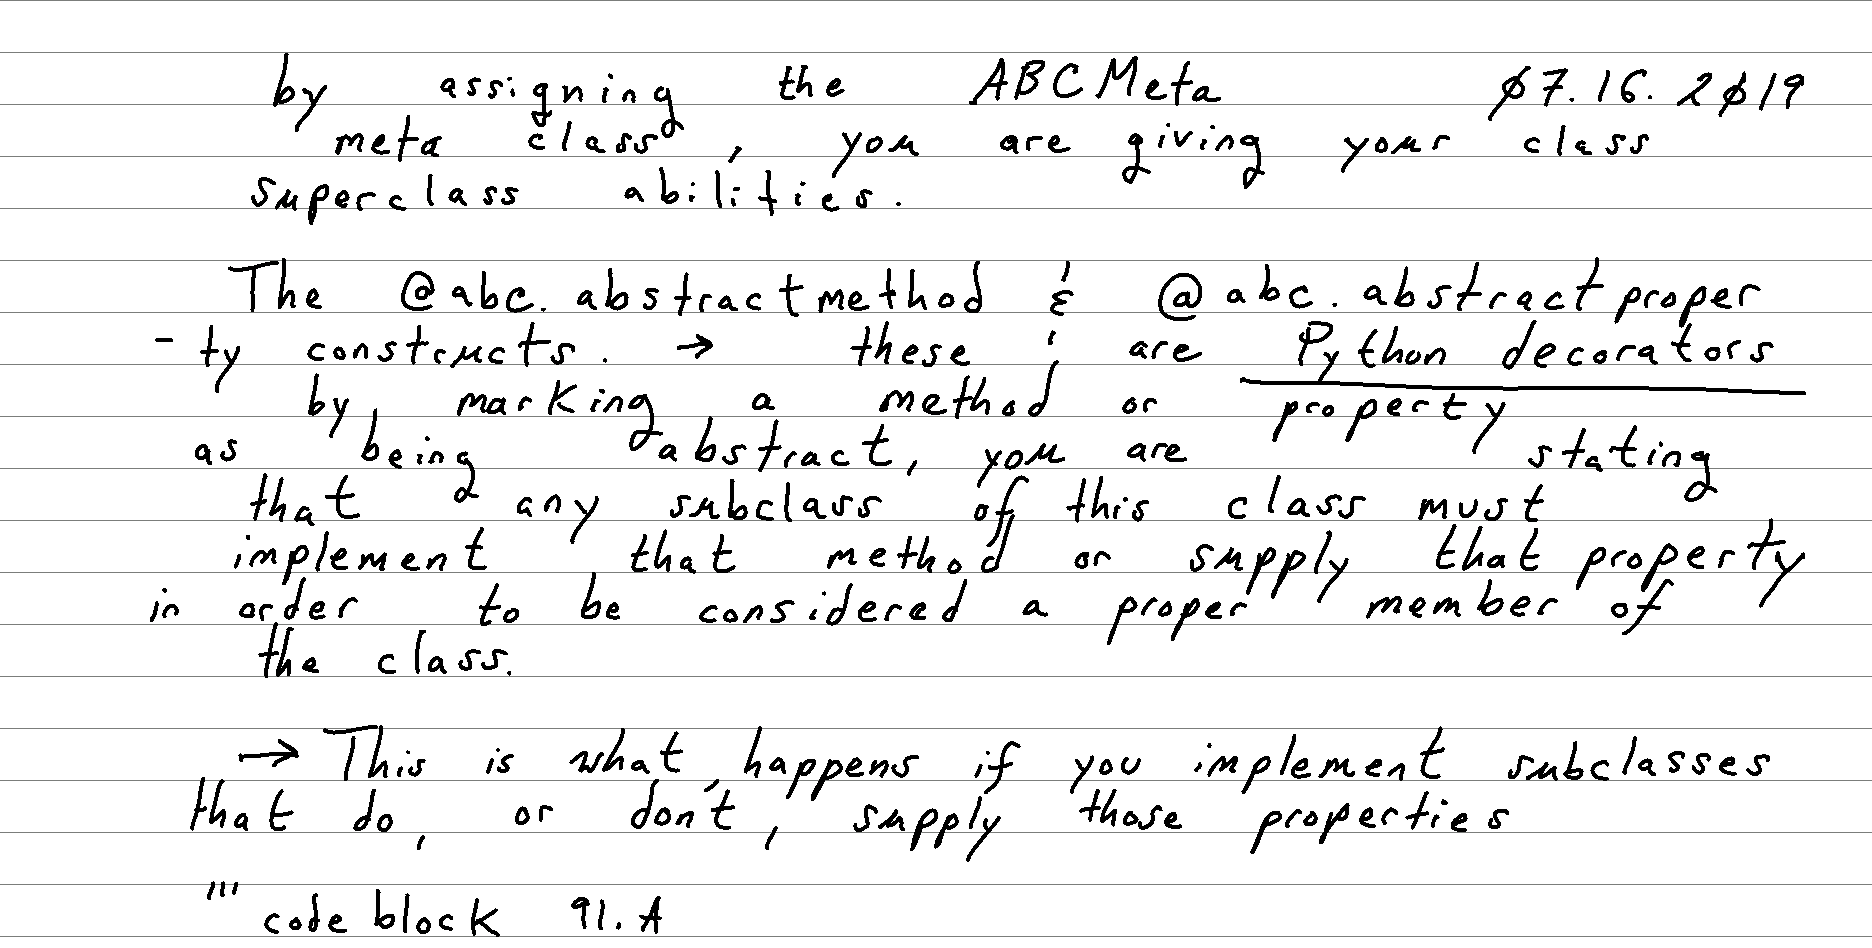 by assigning the ABCMeta ø7.16.2ø19
meta class, you are giving your class
superclass abilities.
The @abc.abstractmethod & @abc.abstractproper
-ty constructs. → these are Python decorators
by marking a method or property
as being abstract, you are stating
that any subclass of this class must
implement that method or supply that property
in order to be considered a proper member of
the class.
→ This is what happens if you implement subclasses
that do, or don't, supply those properties
''' code block 91.A